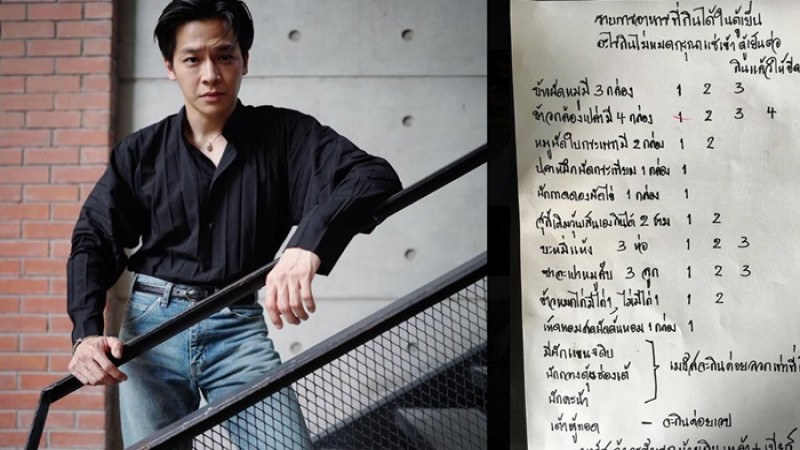 รายการอาหารที่กินได้ในตู้เย็น
อะไรกินไม่หมดกรุณาแช่เข้าตู้เย็นต่อ
กินแล้วให้ขีด
ข้าวผัดหมูมี 3 กล่อง 1 2 3
ข้าวกล้องเปล่ามี 4 กล่อง 1 2 3 4
หมูผัดใบกระเพรามี 2 กล่อง 1 2
ปลาหมึกผัดกระเทียม 1 กล่อง 1
ผักกาดดองผัดไข่ 1 กล่อง 1
สุกี้เติมวุ้นเส้นเองกินได้ 2 ชาม 1 2
บะหมี่แห้ง 3 ห่อ 1 2 3
ซาละเปาหมูสับ 3 ลูก 1 2 3
ข้าวหมกไก่มีไก่ 1, ไม่มีไก่ 1 1 2
เห็ดหอมสดผัดต้นหอม 1 กล่อง 1
มีผักแขนงดิบ
ผักกวางตุ้งฮ่องเต้
ผักคะน้า
จะกินค่อยลวกเท่าที่
เต้าหู้ทอด – จะกินค่อยเวฟ